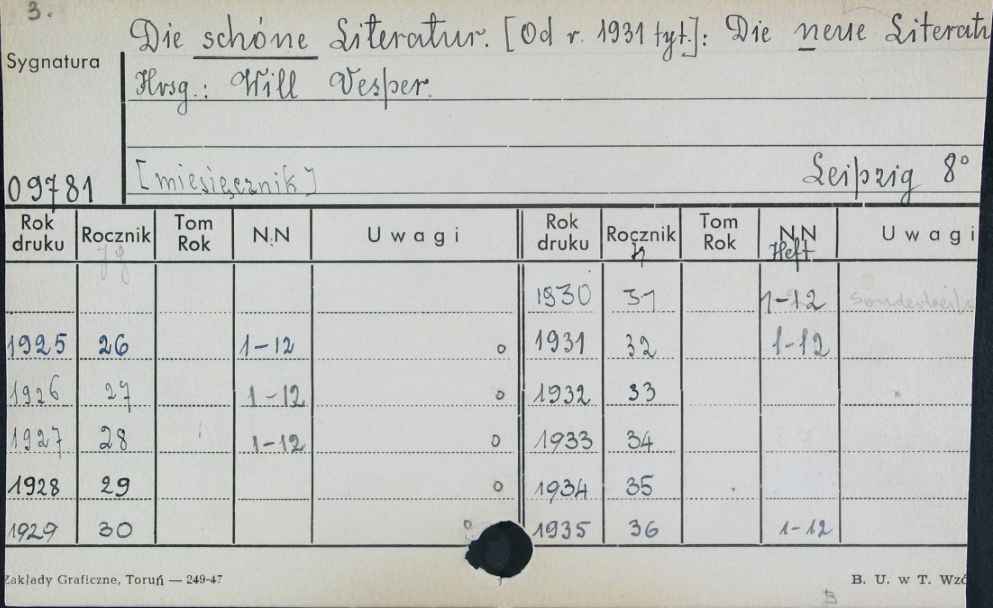 3.
Die schöne Literatur. [Od r. 1931 tyt.]: Die neue Literat
Sygnatura
Hrsg.: Will Vesper.
[miesięcznik] Leipzig 8°
09781
Rok druku Rocznik Tom Rok N.N Uwagi Rok druku Rocznik Tom Rok N.N Uwagi
Jg Heft
1930 31 1-12
1925 26 1-12 o 1931 32 1-12
1926 27 1-12 o 1932 33
1927 28 1-12 o 1933 34
1928 29 o 1934 35
1929 30 o 1935 36 1-12
Zakłady Graficzne, Toruń — 249-47 B. U. w T. Wzó